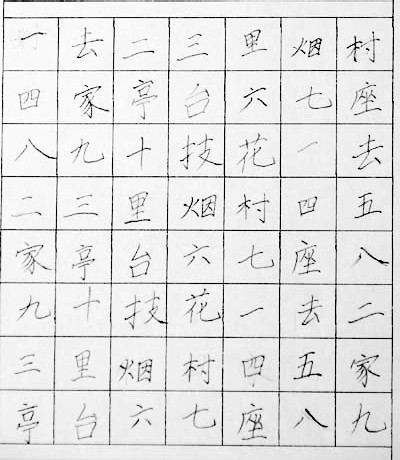 一去二三里烟村
四家亭台六七座
八九十技花一去
二三里烟村四五
家亭台六七座八
九十技花一去二
三里烟村四五家
亭台六七座八九